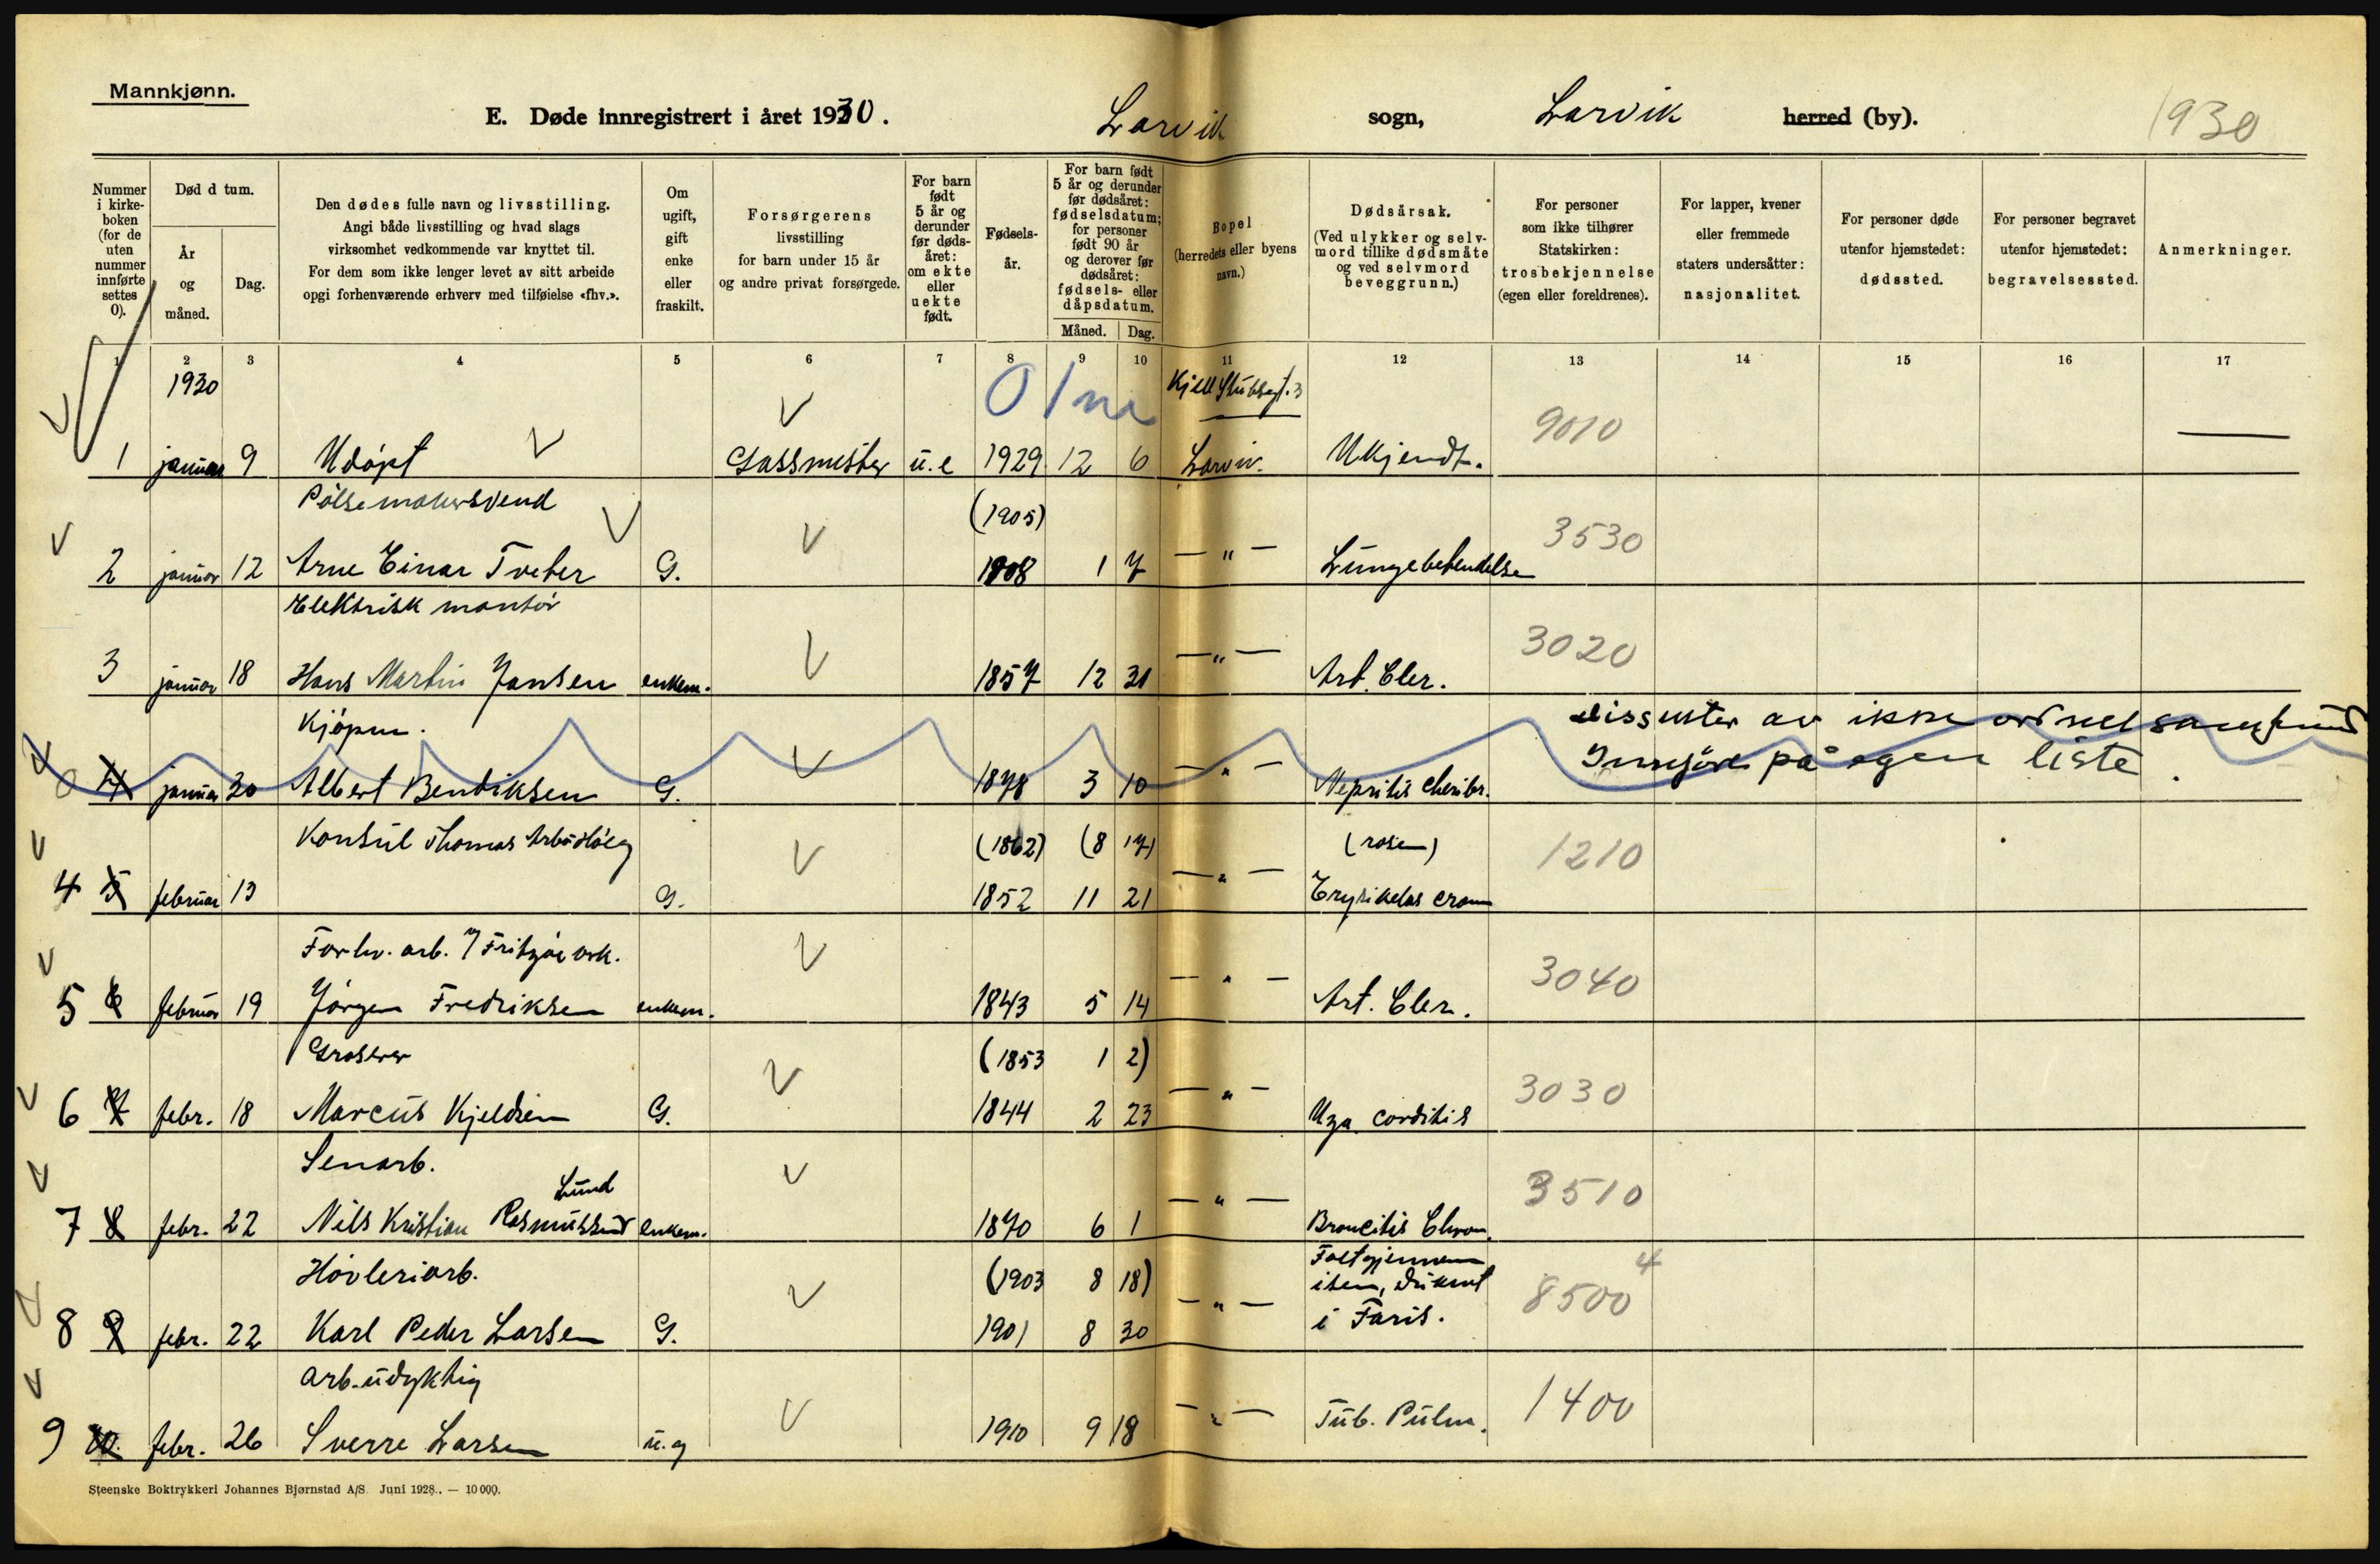 Mannkjønn.
E. Døde innregistrert i året 1930.
Larvik sogn, Larvik herred (by).
1930
Nummer i kirke-boken (for de uten nummer innførte settes 0).
Død d tum.
År og måned.
Dag.
Den dødes fulle navn og livsstilling.
Angi både livsstilling og hvad slags
virksomhet vedkommende var knyttet til.
For dem som ikke lenger levet av sitt arbeide
opgi forhenværende erhverv med tilføielse «fhv.».
Om ugift, gift enke eller fraskilt.
Forsørgerens
livsstilling
for barn under 15 år
og andre privat forsørgede.
For barn født 5 år og derunder før døds-året: om ekte eller uekte født.
Fødsels-år.
For barn født 5 år og derunder før dødsåret: fødselsdatum; for personer født 90 år og derover før dødsåret: fødsels- eller dåpsdatum.
Måned. Dag.
Bopel
(herredets eller byens navn.)
Dødsårsak.
(Ved ulykker og selv-mord tillike dødsmåte og ved selvmord beveggrunn.)
For personer som ikke tilhører Statskirken: trosbekjennelse (egen eller foreldrenes).
For lapper, kvener eller fremmede staters undersåtter: nasjonalitet.
For personer døde utenfor hjemstedet: dødssted.
For personer begravet utenfor hjemstedet: begravelsessted.
Anmerkninger.
1 2 3 4 5 6 7 8 9 10 11 12 13 14 15 16 17
1930 0 1 m Kjell Stubsgt. 3
1 januar 9 Udøpt Gassmester u.e 1929 12 6 Larvik Ukjendt. 9010
Pølsemakersvend (1905)
2 januar 12 Arne Einar Tveter G. 1908 1 7 — " — Lungebetendelse 3530
Elektrisk montør
3 januar 18 Hans Martin Jansen enkem. 1857 12 31 — " — Art. Cler. 3020
Kjøpm. dissenter av ikke ordnet samfund
0 4 januar 30 Albert Bendiksen G. 1878 3 10 — " — Inngjøres på egen liste.
Konsul Thomas Arbo Høeg (1862) (8 17) (rosen)
4 5 februar 13 G. 1852 11 21 — " — 1210
Forhv. arb. v/ Fritzøe vrk.
5 6 februar 19 Jörgen Fredriksen enkem. 1843 5 14 — " — Art. Cler. 3040
Groserer (1853 1 2)
6 7 febr. 18 Marcus Kjeldsen G. 1844 2 23 — " — corditis 3030
Lund
7 8 febr. 22 Nils Kristian Rasmussen enkem. 1870 6 1 — " — Broncitis Chron. 3510
Høvleriarb. (1903 8 18) Falt gjennem
8 9 febr. 22 Karl Peder Larsen G. 1901 8 30 — " — isen, druknet i Faris. 8500 4
arb.udyktig
9 10. febr. 26 Sverre Larsen u.g 1910 9 18 — " — Tub. Pulm. 1400
Steenske Boktrykkeri Johannes Bjørnstad A/S. Juni 1928.. — 10 000.